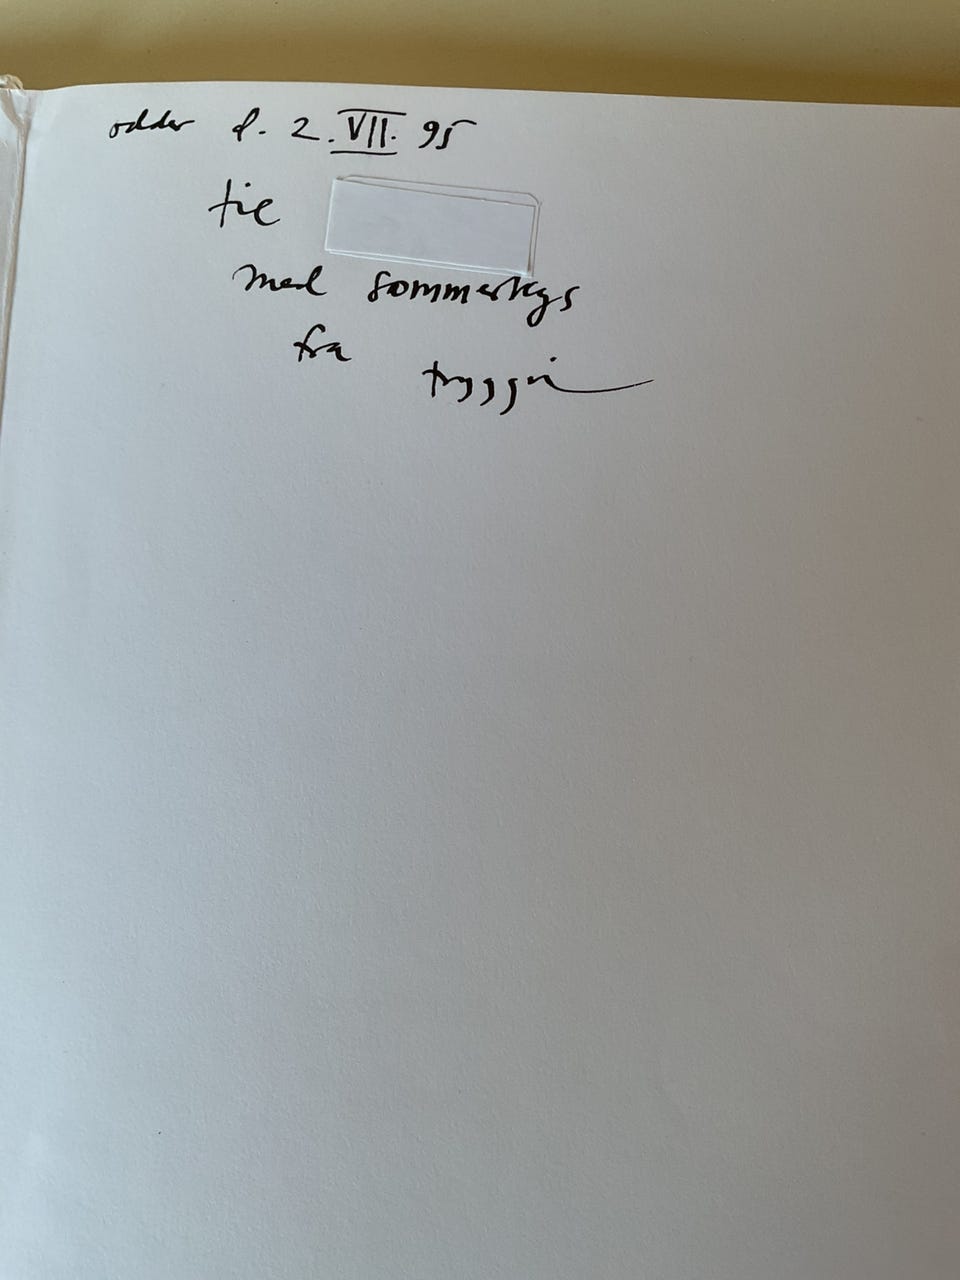 odder d. 2. VII. 95
til
med sommerkys
fra tryggvi